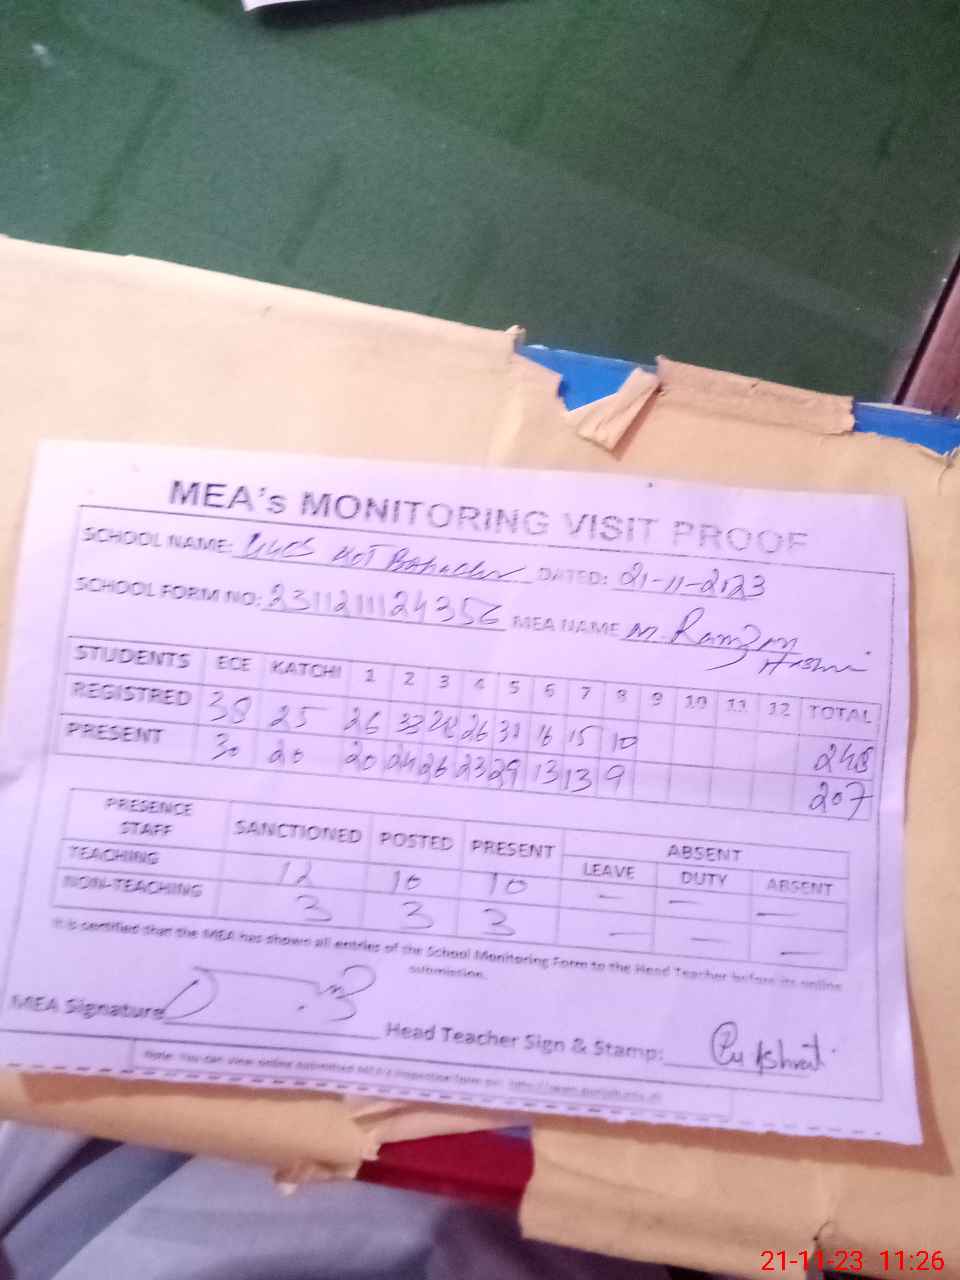 MEA's MONITORING VISIT PROOF
SCHOOL NAME: DATED: 21-11-2023
SCHOOL FORM NO: MEA NAME M. Ramzan
STUDENTS ECE KATCHI 1 2 3 4 5 6 7 8 9 10 11 12 TOTAL
REGISTRED 38 25 26 33 28 26 31 16 15 10 248
PRESENT 30 20 20 24 26 23 29 13 13 9 207
PRESENCE STAFF SANCTIONED POSTED PRESENT ABSENT
LEAVE DUTY ABSENT
TEACHING 12 10 10 — — —
NON-TEACHING 3 3 3 — — —
It is certified that the MEA has shown all entries of the School Monitoring Form to the Head Teacher before its online
submission.
MEA Signature
Head Teacher Sign & Stamp:
Note: You can view online submitted
21-11-23 11:26